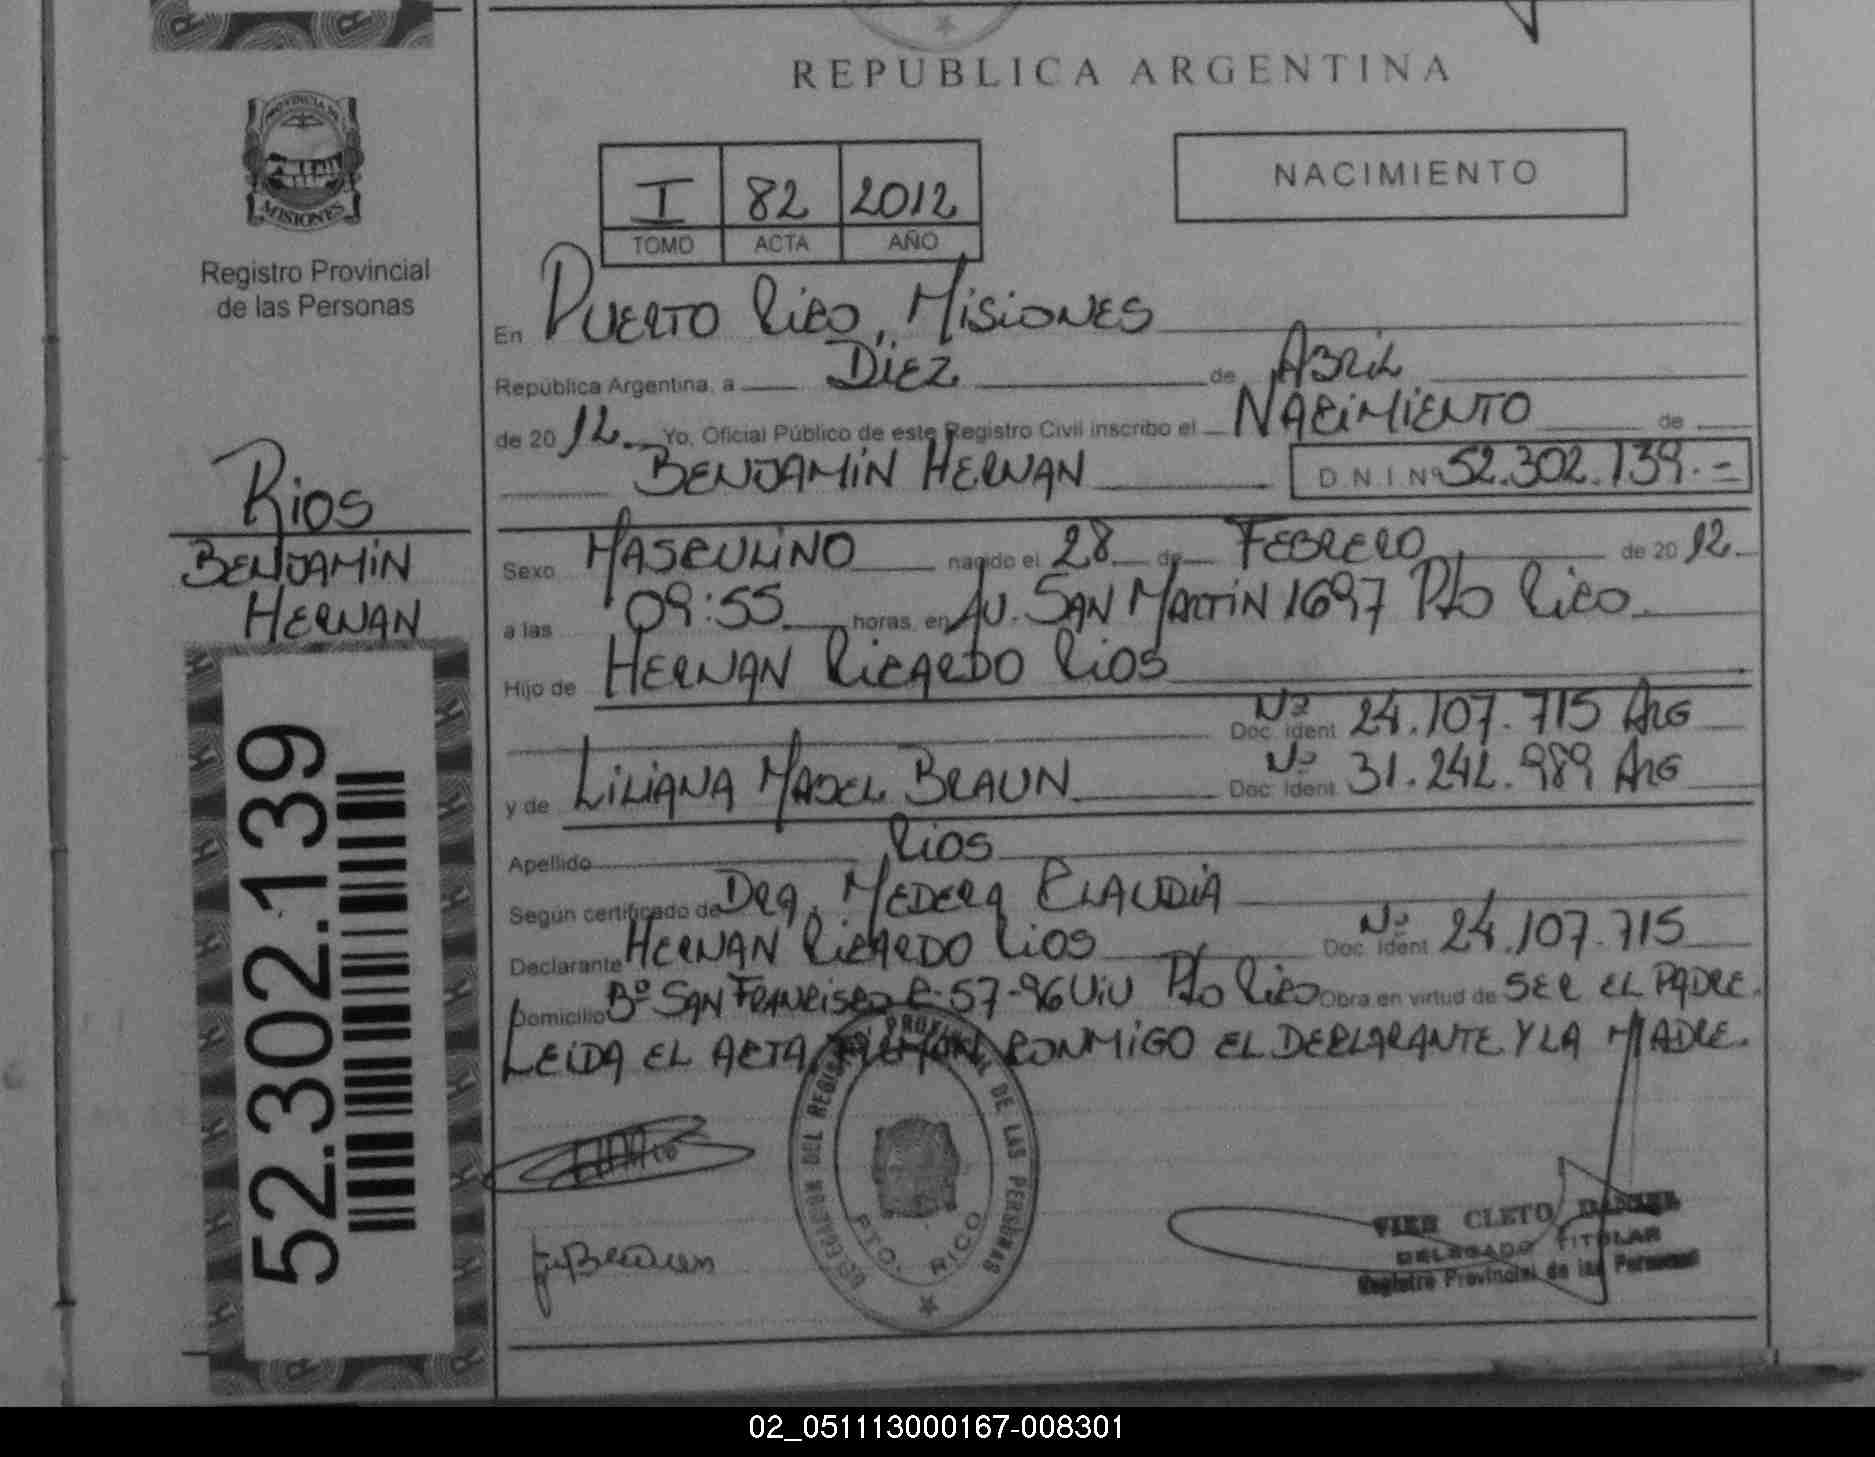 REPUBLICA ARGENTINA
PROVINCIA DE
MISIONES
Registro Provincial
de las Personas
I 82 2012
TOMO ACTA AÑO
NACIMIENTO
En PUERTO RICO, MISIONES
República Argentina, a DIEZ de ABRIL
de 2012 Yo, Oficial Público de este Registro Civil inscribo el NACIMIENTO de
BENJAMIN HERNAN D N I Nº 52.302.139.-
RIOS
BENJAMIN
HERNAN
Sexo MASCULINO nacido el 28 de FEBRERO de 2012
a las 09:55 horas, en AV. SAN MARTIN 1697 Pto RICO
Hijo de HERNAN RICARDO RIOS
Doc. Ident Nº 24.107.715 ARG
y de LILIANA MABEL BRAUN Doc. Ident Nº 31.242.989 ARG
Apellido RIOS
Según certificado de DRA. MEDERA CLAUDIA
Declarante HERNAN RICARDO RIOS Doc. Ident Nº 24.107.715
Domicilio Bº SAN FRANCISCO C-57-96 VIV Pto RICO Obra en virtud de SER EL PADRE.
LEIDA EL ACTA FIRMAN CONMIGO EL DECLARANTE Y LA MADRE.
52.302.139
DELEGACION DEL REGISTRO PROVINCIAL DE LAS PERSONAS
PTO. RICO
CLETO
DELEGADO TITULAR
Registro Provincial de las Personas
02_051113000167-008301